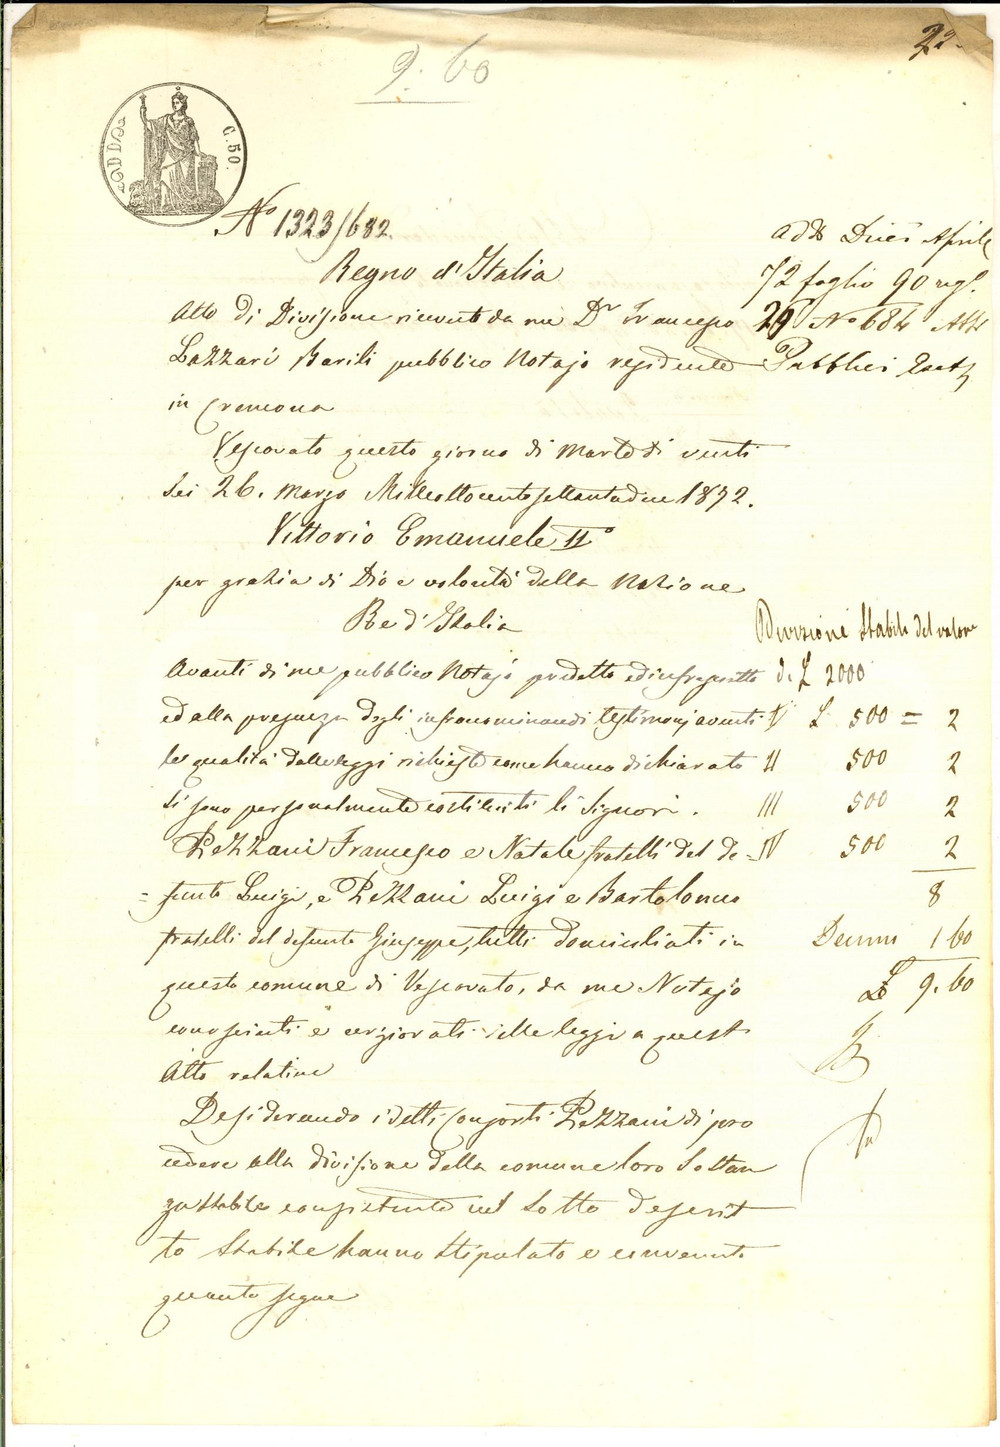 22.
9.60
C. 50.
N.o 1323/682
Regno d'Italia
Atto di Divisione ricevuto da me D.r Francesco
Lazzari Barili pubblico Notajo residente
in Cremona
Vescovato questo giorno di Martedì venti
sei 26. Marzo Milleottocentosettantadue 1872.
Vittorio Emanuele II°
per grazia di Dio e volontà della Nazione
Re d'Italia
Avanti di me pubblico Notajo predetto ed infrascritto
ed alla presenza degli infranominandi testimonj aventi
le qualità dalle leggi richieste come hanno dichiarato
si sono personalmente costituiti li Signori.
Pezzani Francesco e Natale fratelli del de=
=funto Luigi, e Pezzani Luigi e Bartolomeo
fratelli del defunto Giuseppe, tutti domiciliati in
questo comune di Vescovato, da me Notajo
conosciuti e cerziorati delle leggi a quest
Atto relative
Desiderando i detti Consorti Pezzani di pro
cedere alla divisione della comune loro Sostan
za stabile consistente nel sotto descrit
to Stabile hanno stipulato e convenuto
quanto segue
add Dieci Aprile
72 foglio 90 reg.
29 N.o 684 Atti
Pubblici
Divisione Stabile del valore
di £ 2000
I £ 500 = 2
II 500 2
III 500 2
IV 500 2
8
Decimi 1 60
£ 9.60